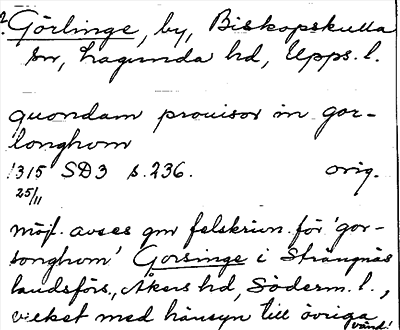 ? Görlinge, by, Biskopskulla
sn, Lagunda hd, Upps. l.
quondam prouisor in gor-
longhom
1315 SD3 s. 236. orig.
25/11
möjl. avses gm felskrivn. för 'gor-
songhom' Gorsinge i Strängnäs
landsförs., Åkers hd, Söderm. l.,
vilket med hänsyn till övriga
(vänd!